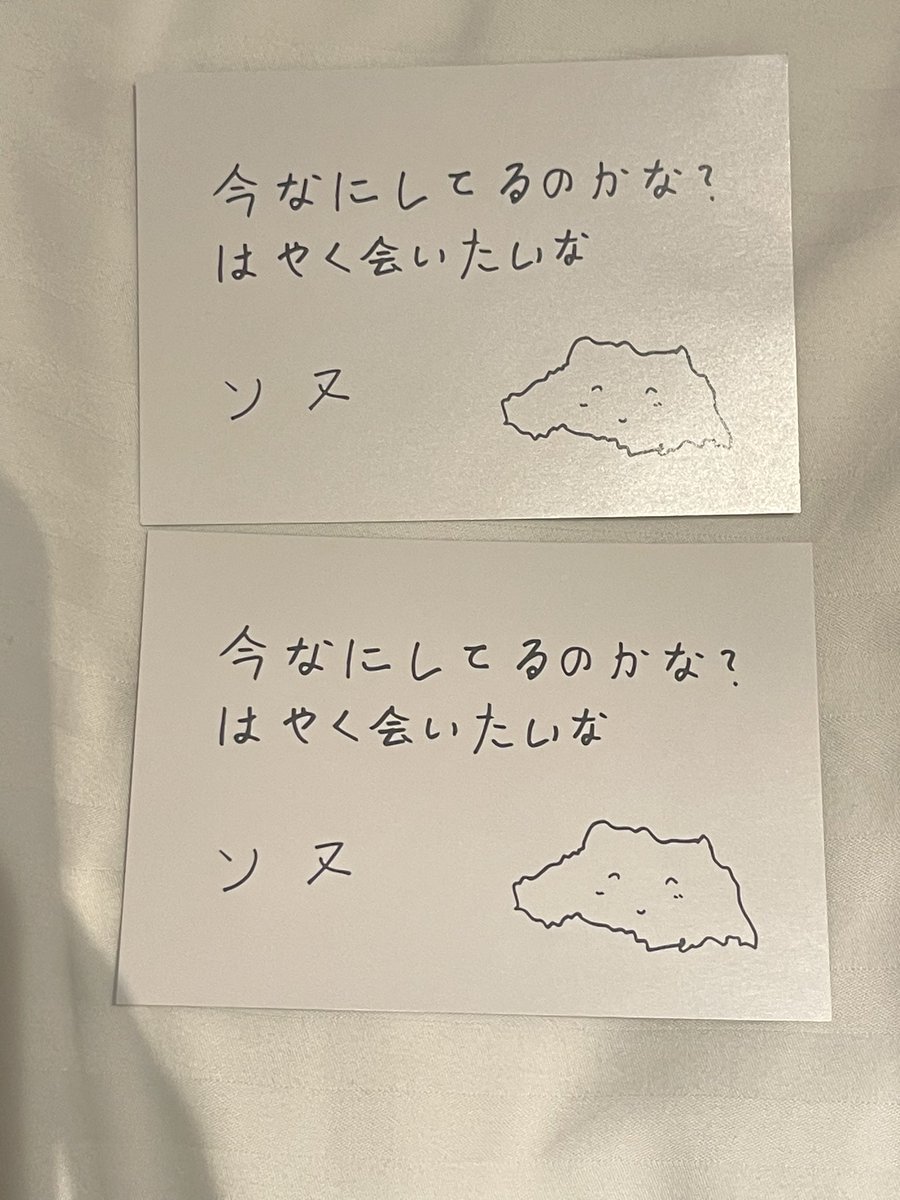 今なにしてるのかな?
はやく会いたいな
ソヌ
今なにしてるのかな?
はやく会いたいな
ソヌ